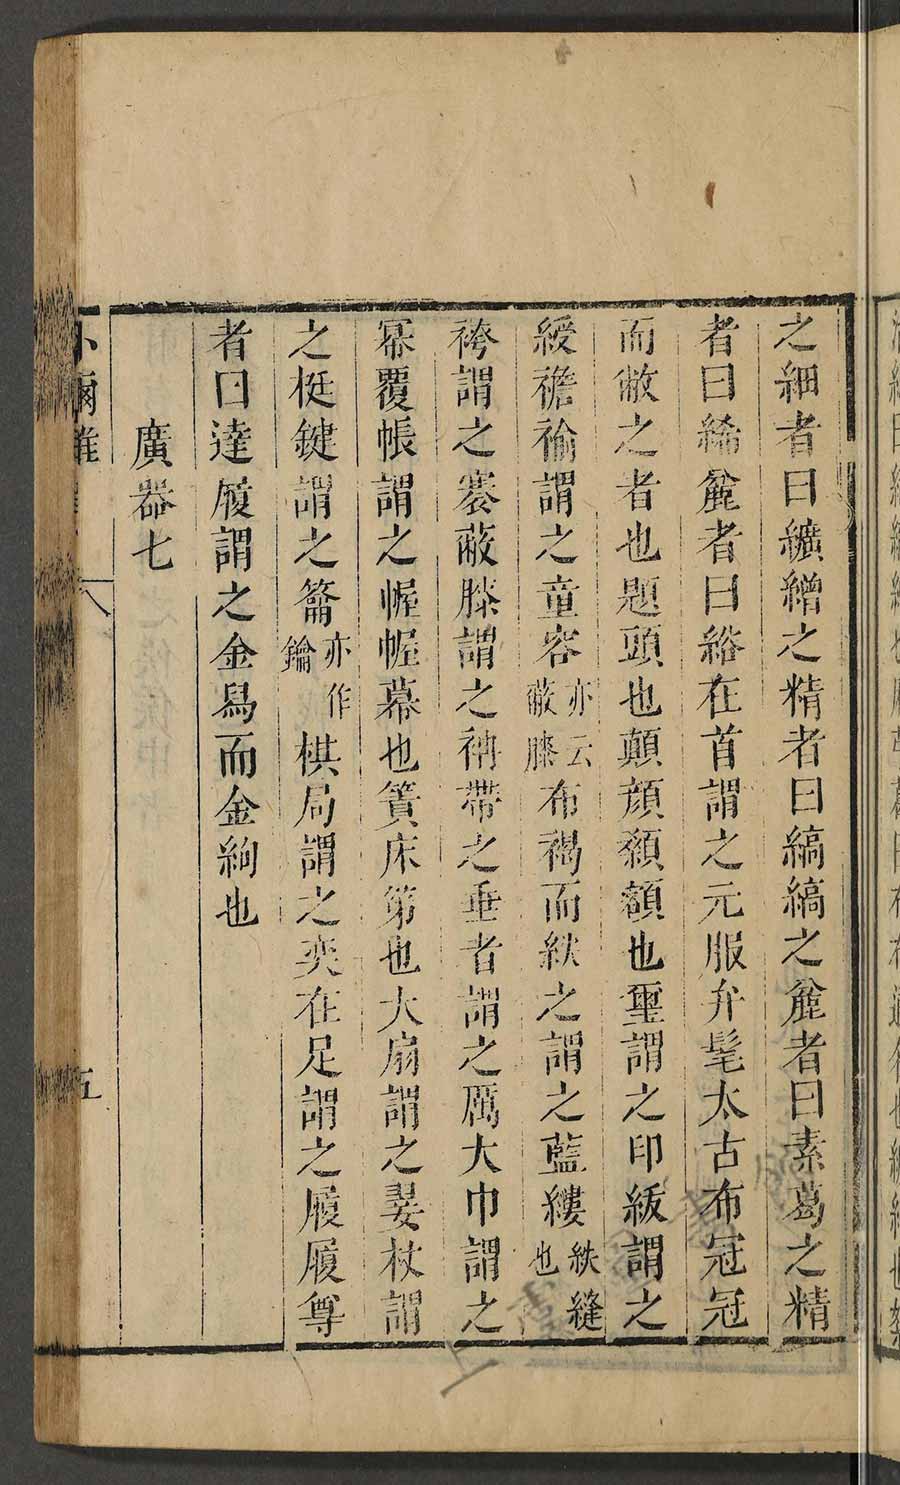 之細者曰纊繒之精者曰縞縞之麄者曰素葛之精
者曰絺麄者曰綌在首謂之元服弁髦太古布冠冠
而敝之者也題頭也顛顏額額也璽謂之印紱謂之
綬襜褕謂之童容亦云蔽膝布褐而紩之謂之藍縷紩縫也
袴謂之褰蔽膝謂之袡帶之垂者謂之厲大巾謂之
冪覆帳謂之幄幄幕也簀床第也大扇謂之翣杖謂
之梃鍵謂之籥亦作鑰棋局謂之奕在足謂之履履尊
者曰達履謂之金舄而金絇也
廣器七
小爾雅
八
五